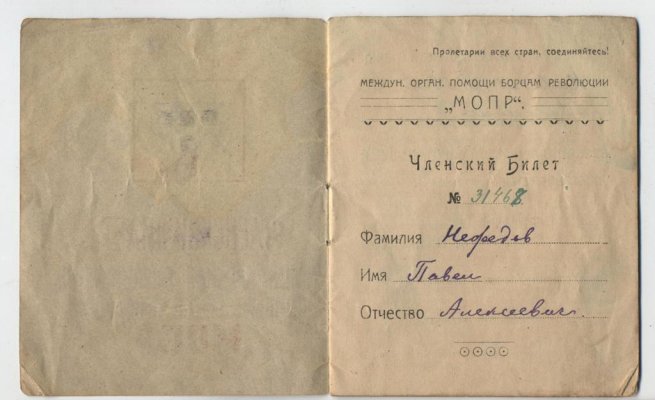 Пролетарии всех стран, соединяйтесь!
МЕЖДУН. ОРГАН. ПОМОЩИ БОРЦАМ РЕВОЛЮЦИИ
„МОПР“.
Членский Билет
№ 31468
Фамилия Нефедов
Имя Павел
Отчество Алексеевич